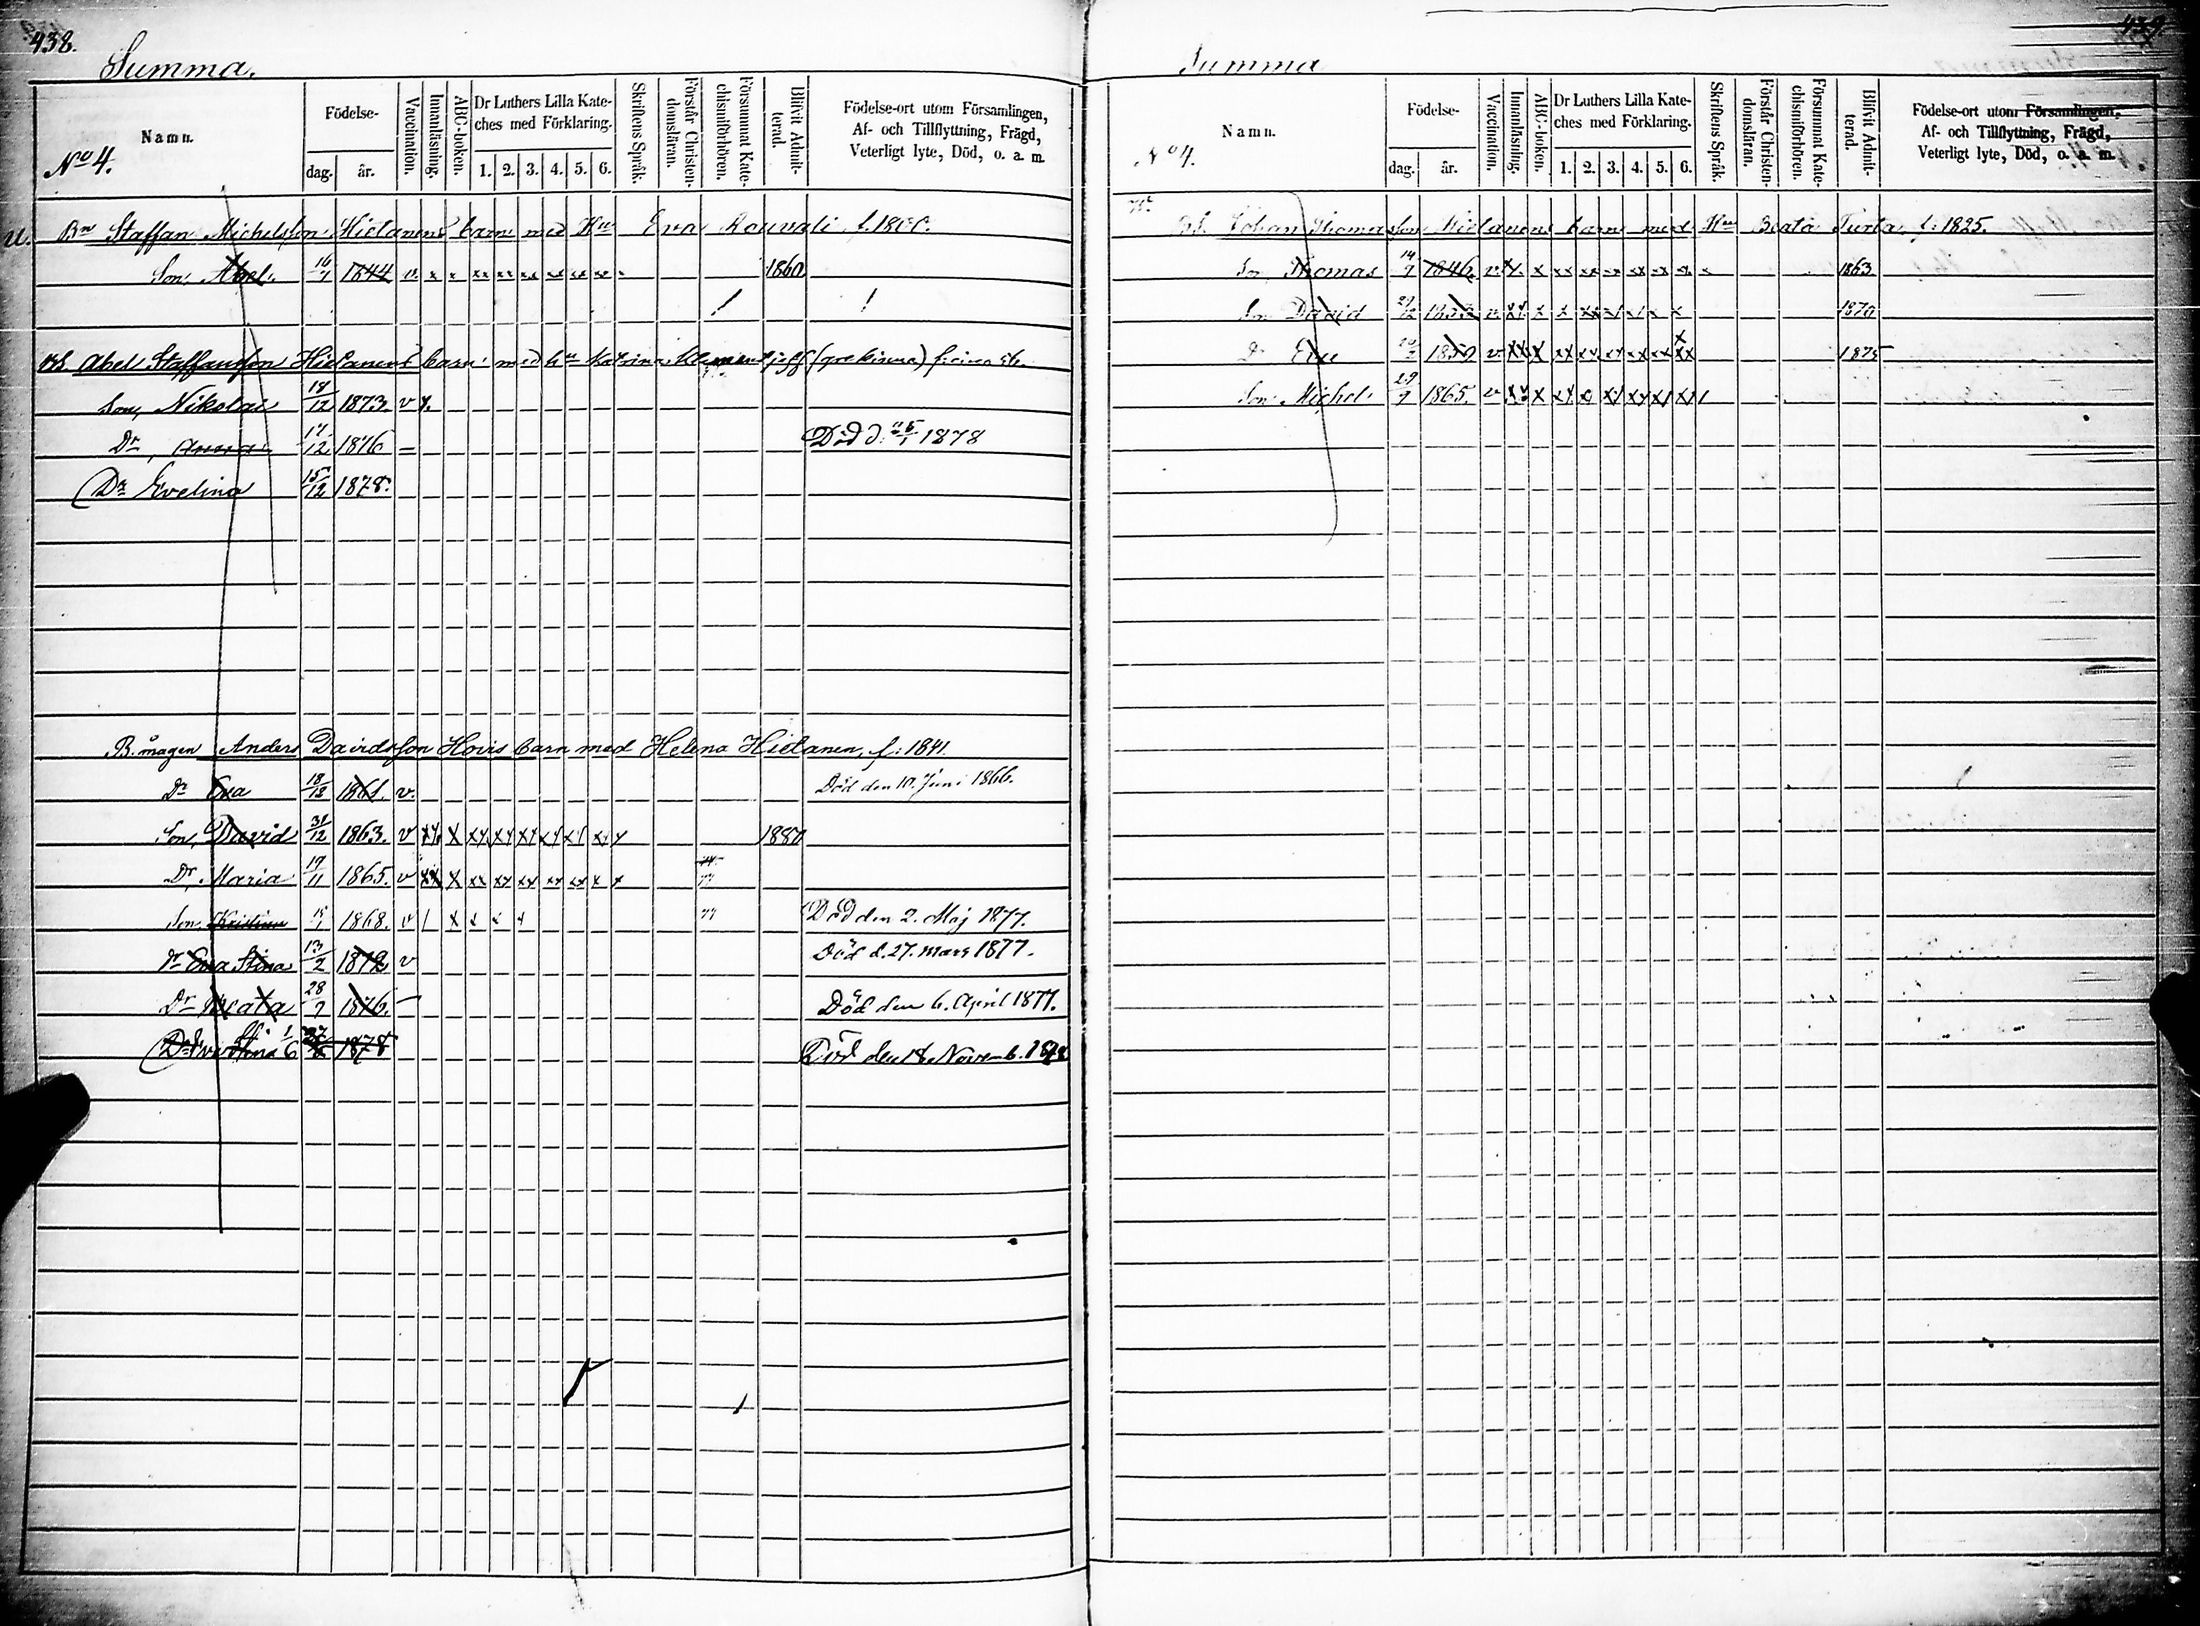 438.
Summa.
Namn.
No 4.
Födelse-
dag. år.
Vaccination.
Innanläsning.
ABC-boken.
Dr Luthers Lilla Kate-
ches med Förklaring.
1. 2. 3. 4. 5. 6.
Skriftens Språk.
Förstår Christen-
domsläran.
Försummat Kate-
chismiförhören.
Blifvit Admit-
terad.
Födelse-ort utom Församlingen,
Af- och Tillflyttning, Frägd,
Veterligt lyte, Död, o. a. m.
Bn Staffan Michelsson Hietanens barn med Hu Eva Rouvali f.
Son, Abel 16/7 1844 v x x xx xx xx xx xx xx 1860
Abel Staffansson Hietanens barn med hu Katrina
Son, Nikolai 18/12 1873. v x.
Dr, Anna 17/12 1876 – Död d. 1878
Dr Evelina 15/12 1878.
B. mågen Anders Davidsson Hovis barn med Helena Hietanen, f: 1841.
Dr Eva 18/12 1861. v. Död den 10. Juni 1866.
Son, David 31/12 1863. v xx x xx xx xx xx xx xx x 1880
Dr, Maria 17/11 1865. v xx x xx xx xx xx xx x x 77
Son, 1868. v / x x x x 77 Död den 2. Maj 1877.
Dr Eva Stina 13/2 1872 v Död d. 27. mars 1877.
Dr Beata 28/7 1876. – Död den 6. April 1877.
1878 Död den 18 Novemb. 1878
439.
Summa
Namn.
No 4.
Födelse-
dag. år.
Vaccination.
Innanläsning.
ABC-boken.
Dr Luthers Lilla Kate-
ches med Förklaring.
1. 2. 3. 4. 5. 6.
Skriftens Språk.
Förstår Christen-
domsläran.
Försummat Kate-
chismiförhören.
Blifvit Admit-
terad.
Födelse-ort utom Församlingen,
Af- och Tillflyttning, Frägd,
Veterligt lyte, Död, o. a. m.
Johan Thomasson Hietanens barn med Hu Beata Turta, f: 1825.
Son, Thomas 14/7 1846. v x. x xx xx xx xx xx xx x 1863
Son David 1853 v xx x x xx xx xx x x 1870
Dr Eva 1859 v xx x xx xx xx xx xx xx 1875
Son Michel 29/9 1865. v xx x xx x xx xx xx xx /